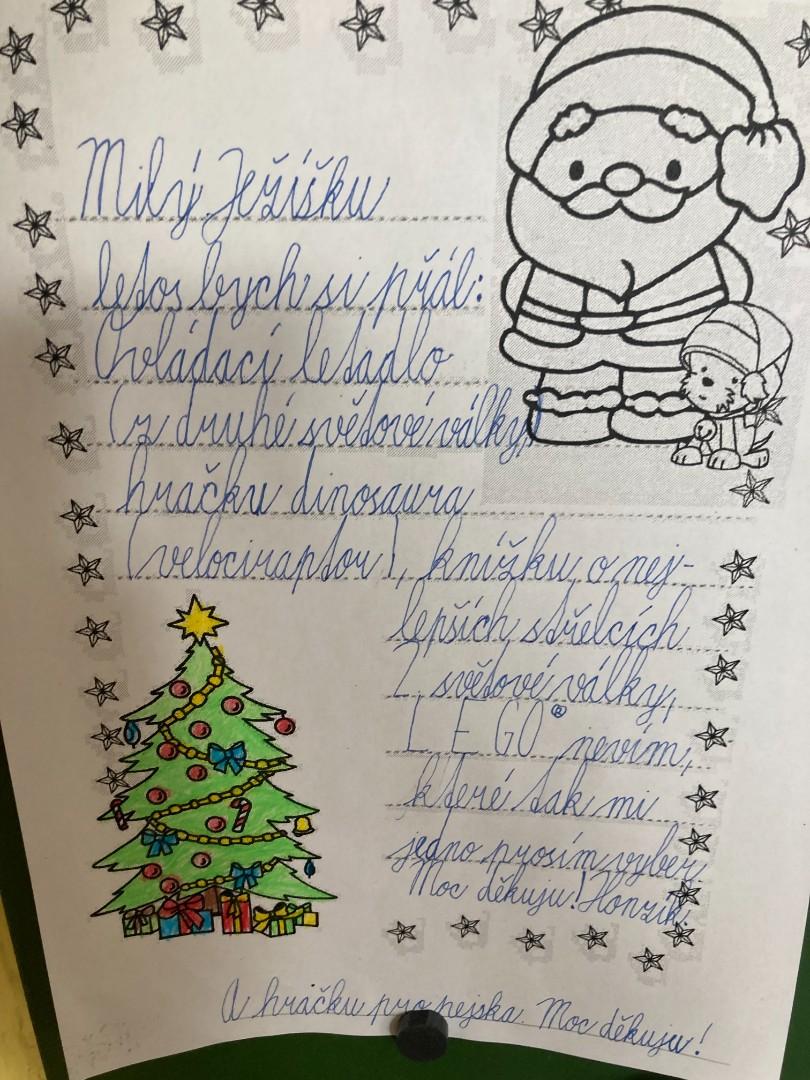 Milý Ježíšku
letos bych si přál:
Ovládací letadlo
(z druhé světové války)
hračku dinosaura
(velociraptor), knížku o nej-
lepších střelcích
2 světové války,
LEGO® nevím,
které tak mi
jedno prosím vyber.
Moc děkuju! Honzík.
A hračku pro pejska. Moc děkuju!